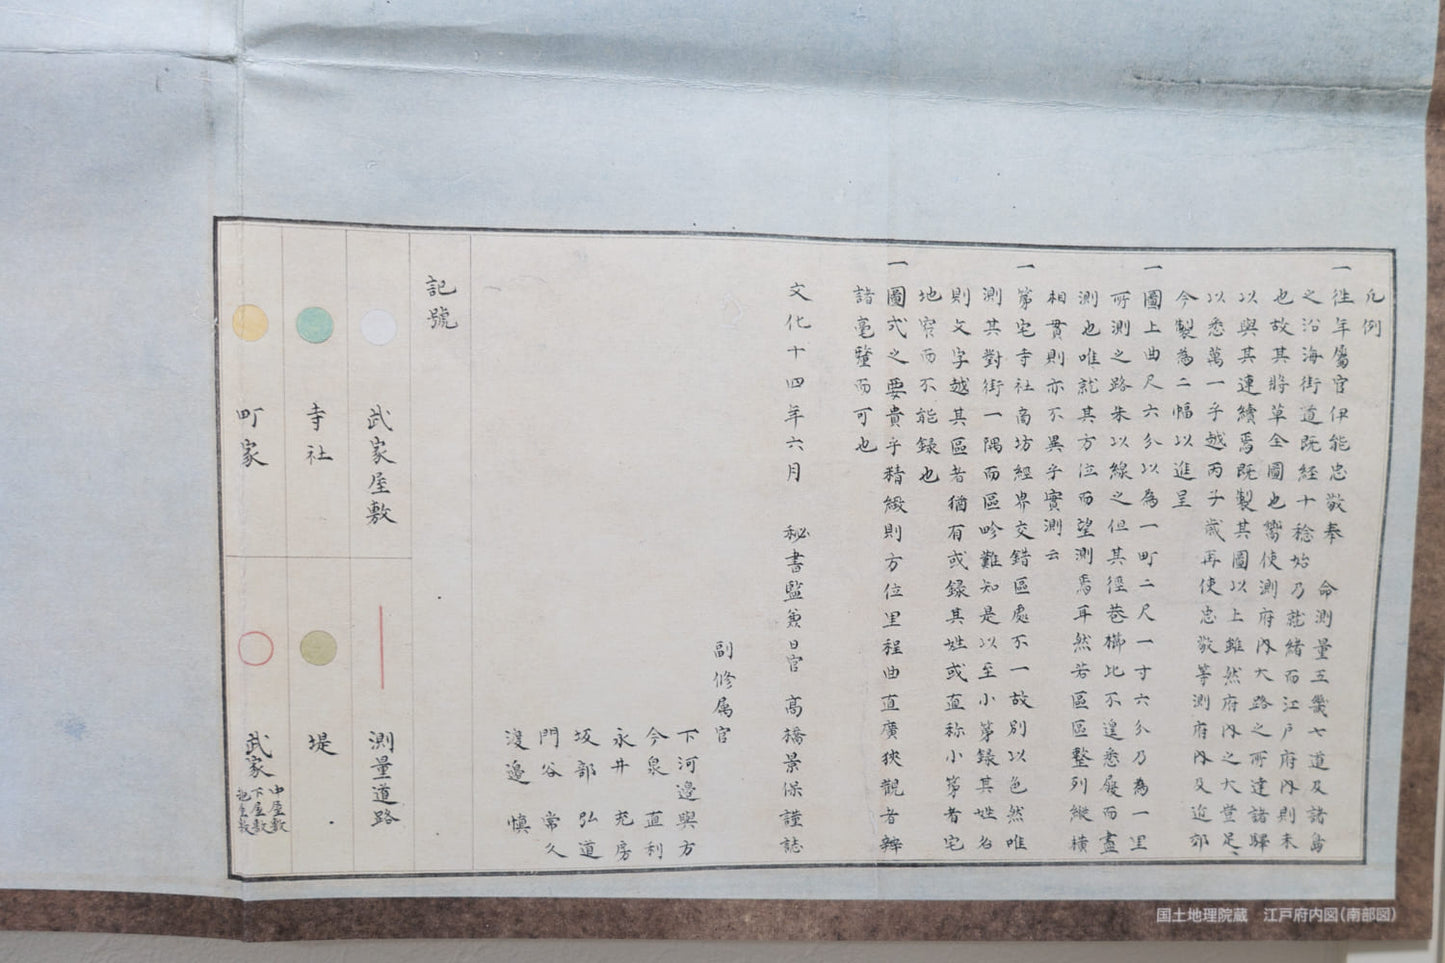 凡例
一往年屬官伊能忠敬奉　命測量五畿七道及諸島
之沿海街道既経十稔始乃就緒而江戸府内則未
也故其將草全圖也嚮使測府内大路之所達諸驛
以與其連續焉既製其圖以上雖然府内之大豈足
以悉萬一乎越丙子歳再使忠敬等測府内及近郊
今製為二幅以進呈
一圖上曲尺六分以為一町二尺一寸六分乃為一里
所測之路朱以線之但其徑巷櫛比不遑悉履而盡
測也唯就其方位而望測焉耳然若區區整列縱横
相貫則亦不異乎實測云
一第宅寺社商坊經界交錯區處不一故別以色然唯
測其對街一隅而區吟難知是以至小第録其姓名
則文字越其區者猶有或録其姓或直称小第者宅
地窄而不能録也
一圖式之要貴乎精緻則方位里程曲直廣狹觀者辨
諸毫釐而可也
文化十四年六月　秘書監兼日官　高橋景保謹誌
副修属官
下河邊與方
今泉　直利
永井　充房
坂部　弘道
門谷　常久
渡邉　慎
記號
武家屋敷
測量道路
寺社
堤
町家
武家 中屋敷 下屋敷 抱屋敷
国土地理院蔵　江戸府内図(南部図)